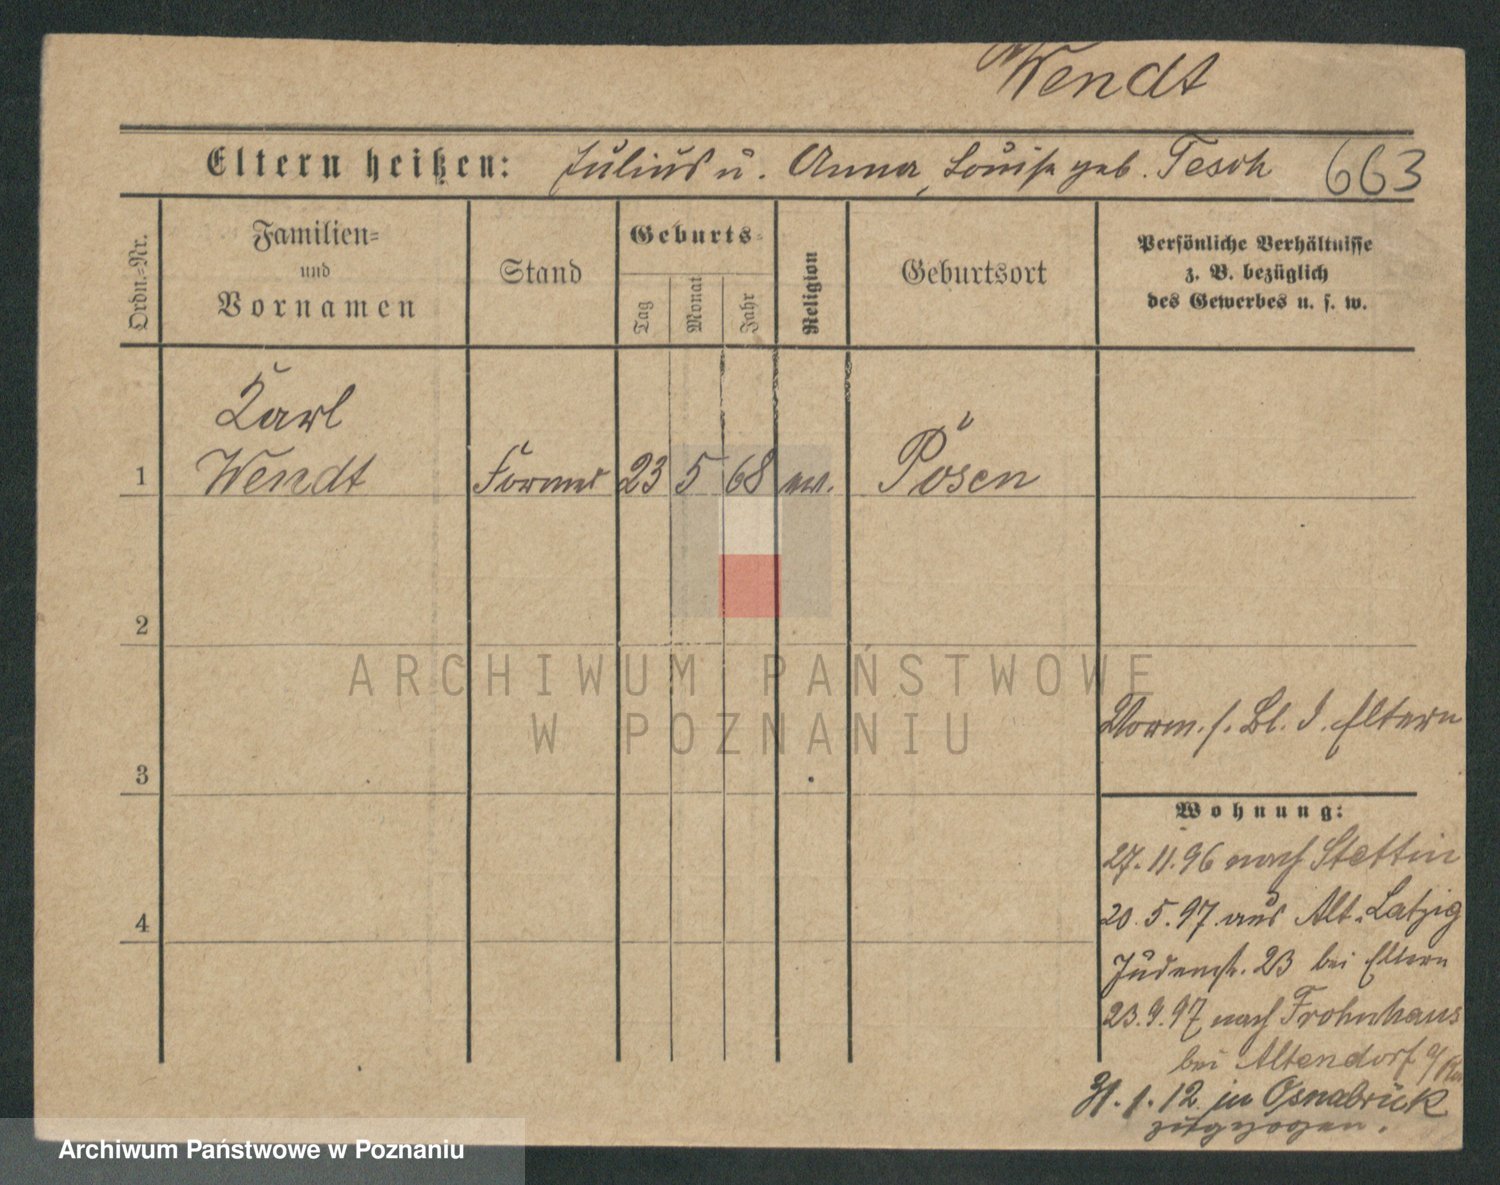 Wendt
Eltern heißen: Julius u. Anna, Louise geb. Tesch 663
Ordn.-Nr.
Familien-
und
Vornamen
Stand
Geburts-
Tag
Monat
Jahr
Religion
Geburtsort
Persönliche Verhältnisse
z. B. bezüglich
des Gewerbes u. s. w.
Karl
1 Wendt Former 23 5 68 ev. Posen
2
ARCHIWUM PAŃSTWOWE
W POZNANIU
Vorm. s. Bl. d. Eltern
3
Wohnung:
27.11.96 nach Stettin
20.5.97 aus Alt-Latzig
4
Judenstr. 23 bei Eltern
23.9.97 nach Frohnhaus
bei Altendorf
31.1.12 in Osnabrück
zugezogen.
Archiwum Państwowe w Poznaniu